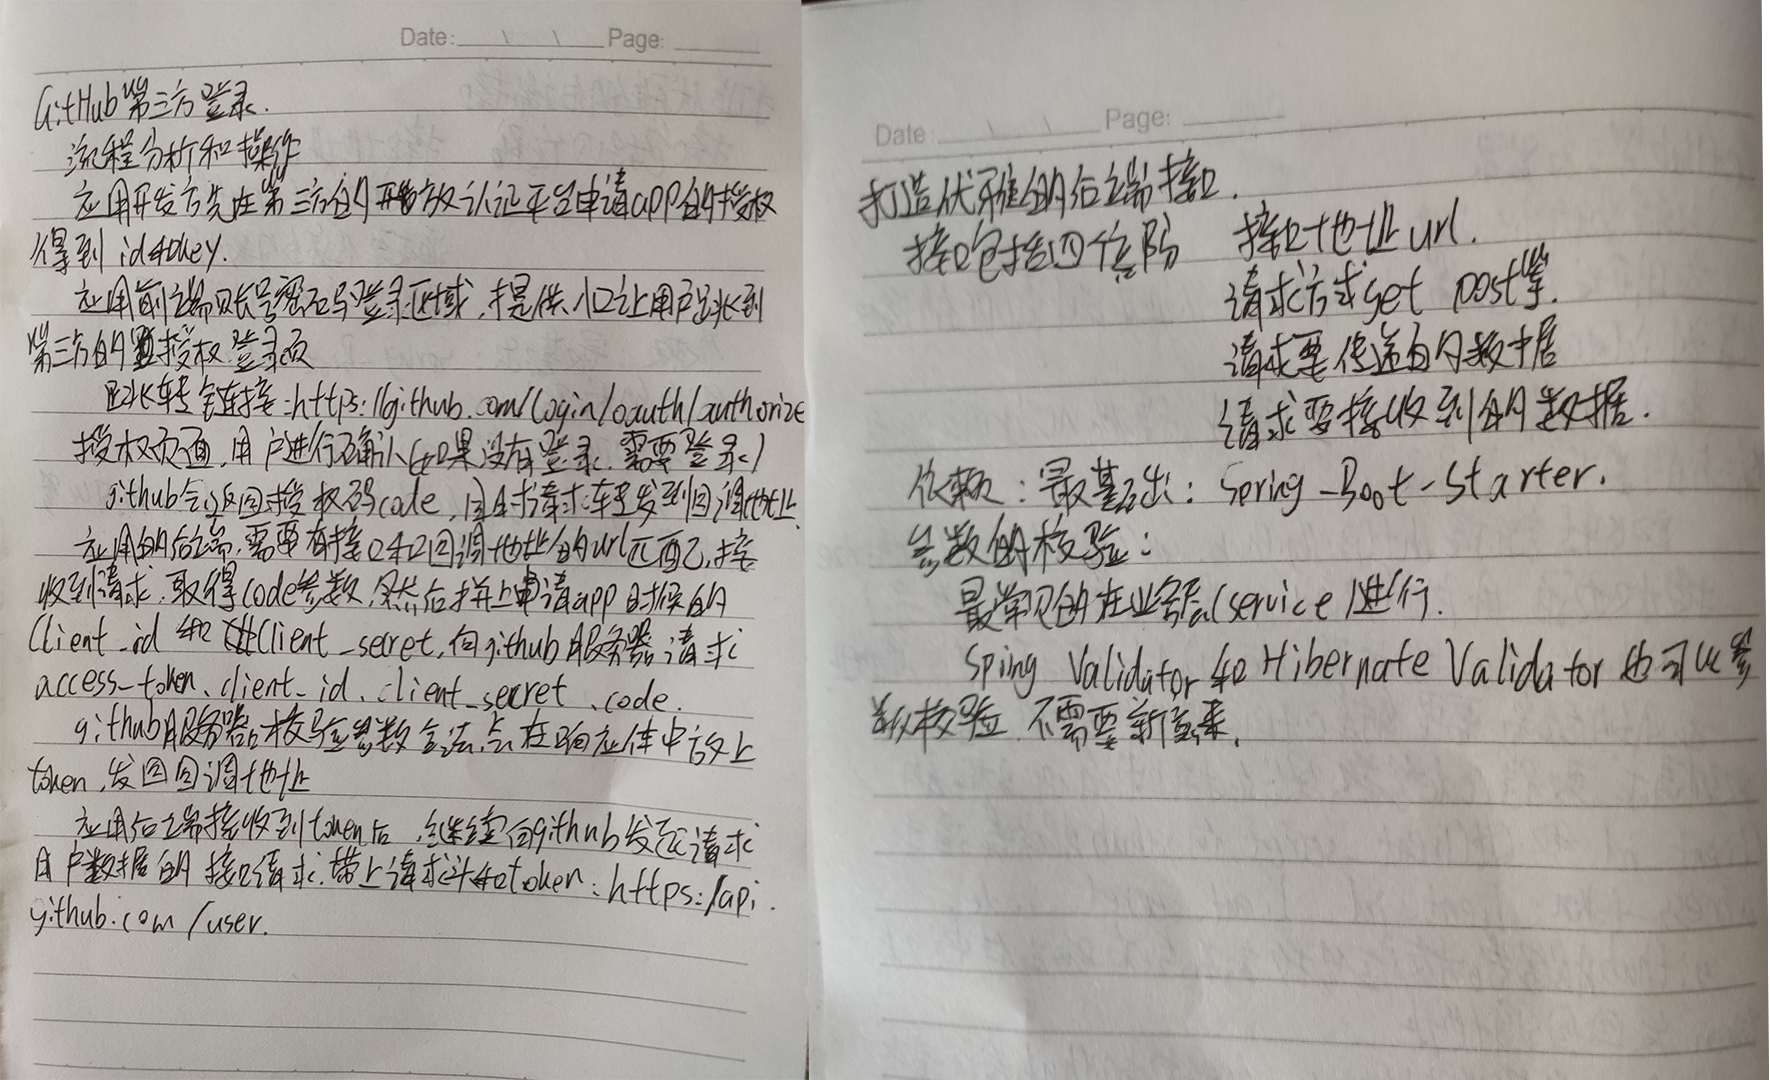 Date: Page:
GitHub第三方登录.
流程分析和操作
应用开发方先在第三方的开放认证平台申请app的授权
得到id和key.
应用前端账号密码登录区域,提供入口让用户跳到
第三方的授权登录页
跳转链接:https://github.com/login/oauth/authorize
授权页面,用户进行确认(如果没有登录.需要登录)
github会返回授权码code,同时请求转发到回调地址
应用的后端,需要有接口和回调地址的url匹配,接
收到请求.取得code参数,然后拼上申请app时候的
Client_id 和Client_secret,向github服务器请求
access_token、client_id、client_secret、code.
github服务器校验参数合法,会在响应体中放上
token,发回回调地址
应用后端接收到token后,继续向github发送请求
用户数据的接口请求.带上请求头和token:https:/api.
github.com/user.
Date: Page:
打造优雅的后端接口.
接口包括四个部分 接口地址url.
请求方式get post等.
请求要传递的数据
请求要接收到的数据.
依赖:最基础:Spring-Boot-Starter.
参数的校验:
最常见的在业务层(service)进行.
Sping Validator和Hibernate Validator也可以参
数校验.不需要新